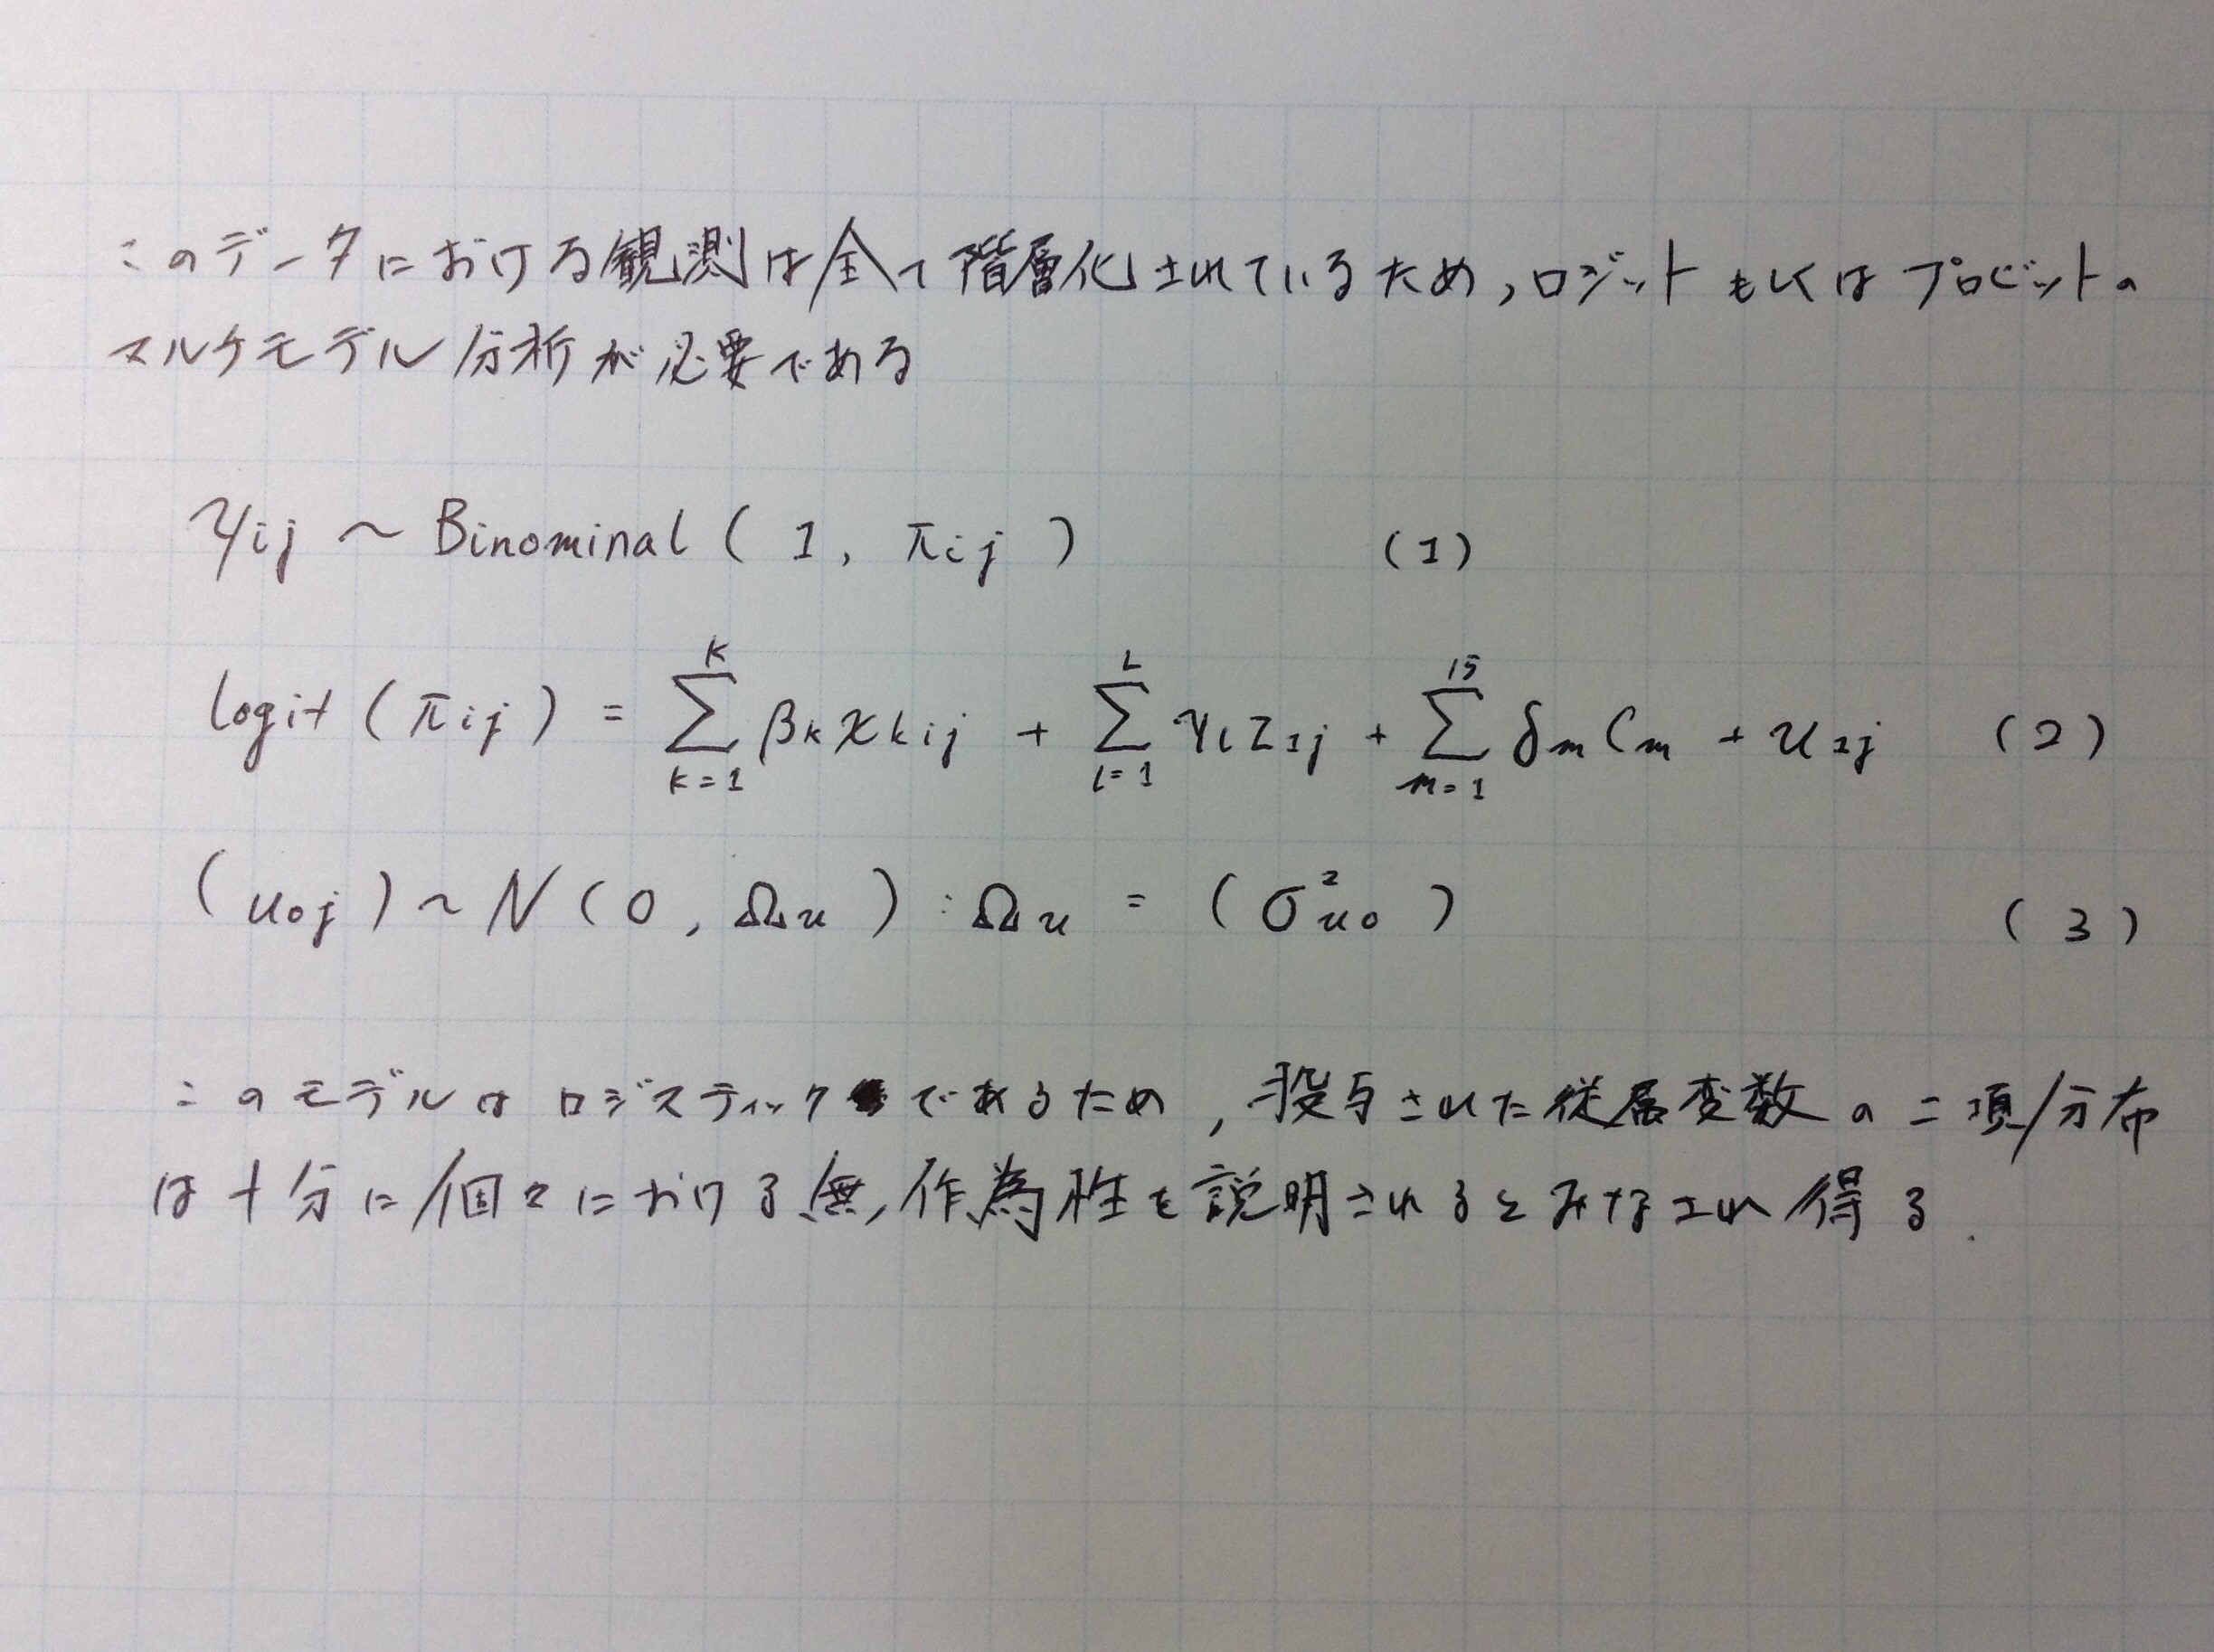 このデータにおける観測は全て階層化されているため,ロジットもしくはプロビットの
マルチモデル分析が必要である
yij ~ Binominal ( 1, πij ) (1)
logit (πij) = Σ_{k=1}^{K} βk xkij + Σ_{l=1}^{L} γl z1j + Σ_{m=1}^{15} δm Cm + u2j (2)
(u0j) ~ N ( 0, Ωu ) : Ωu = ( σ²u0 ) (3)
このモデルはロジスティックであるため,投与された従属変数の二項分布
は十分に個々における無作為性を説明されるとみなされ得る.